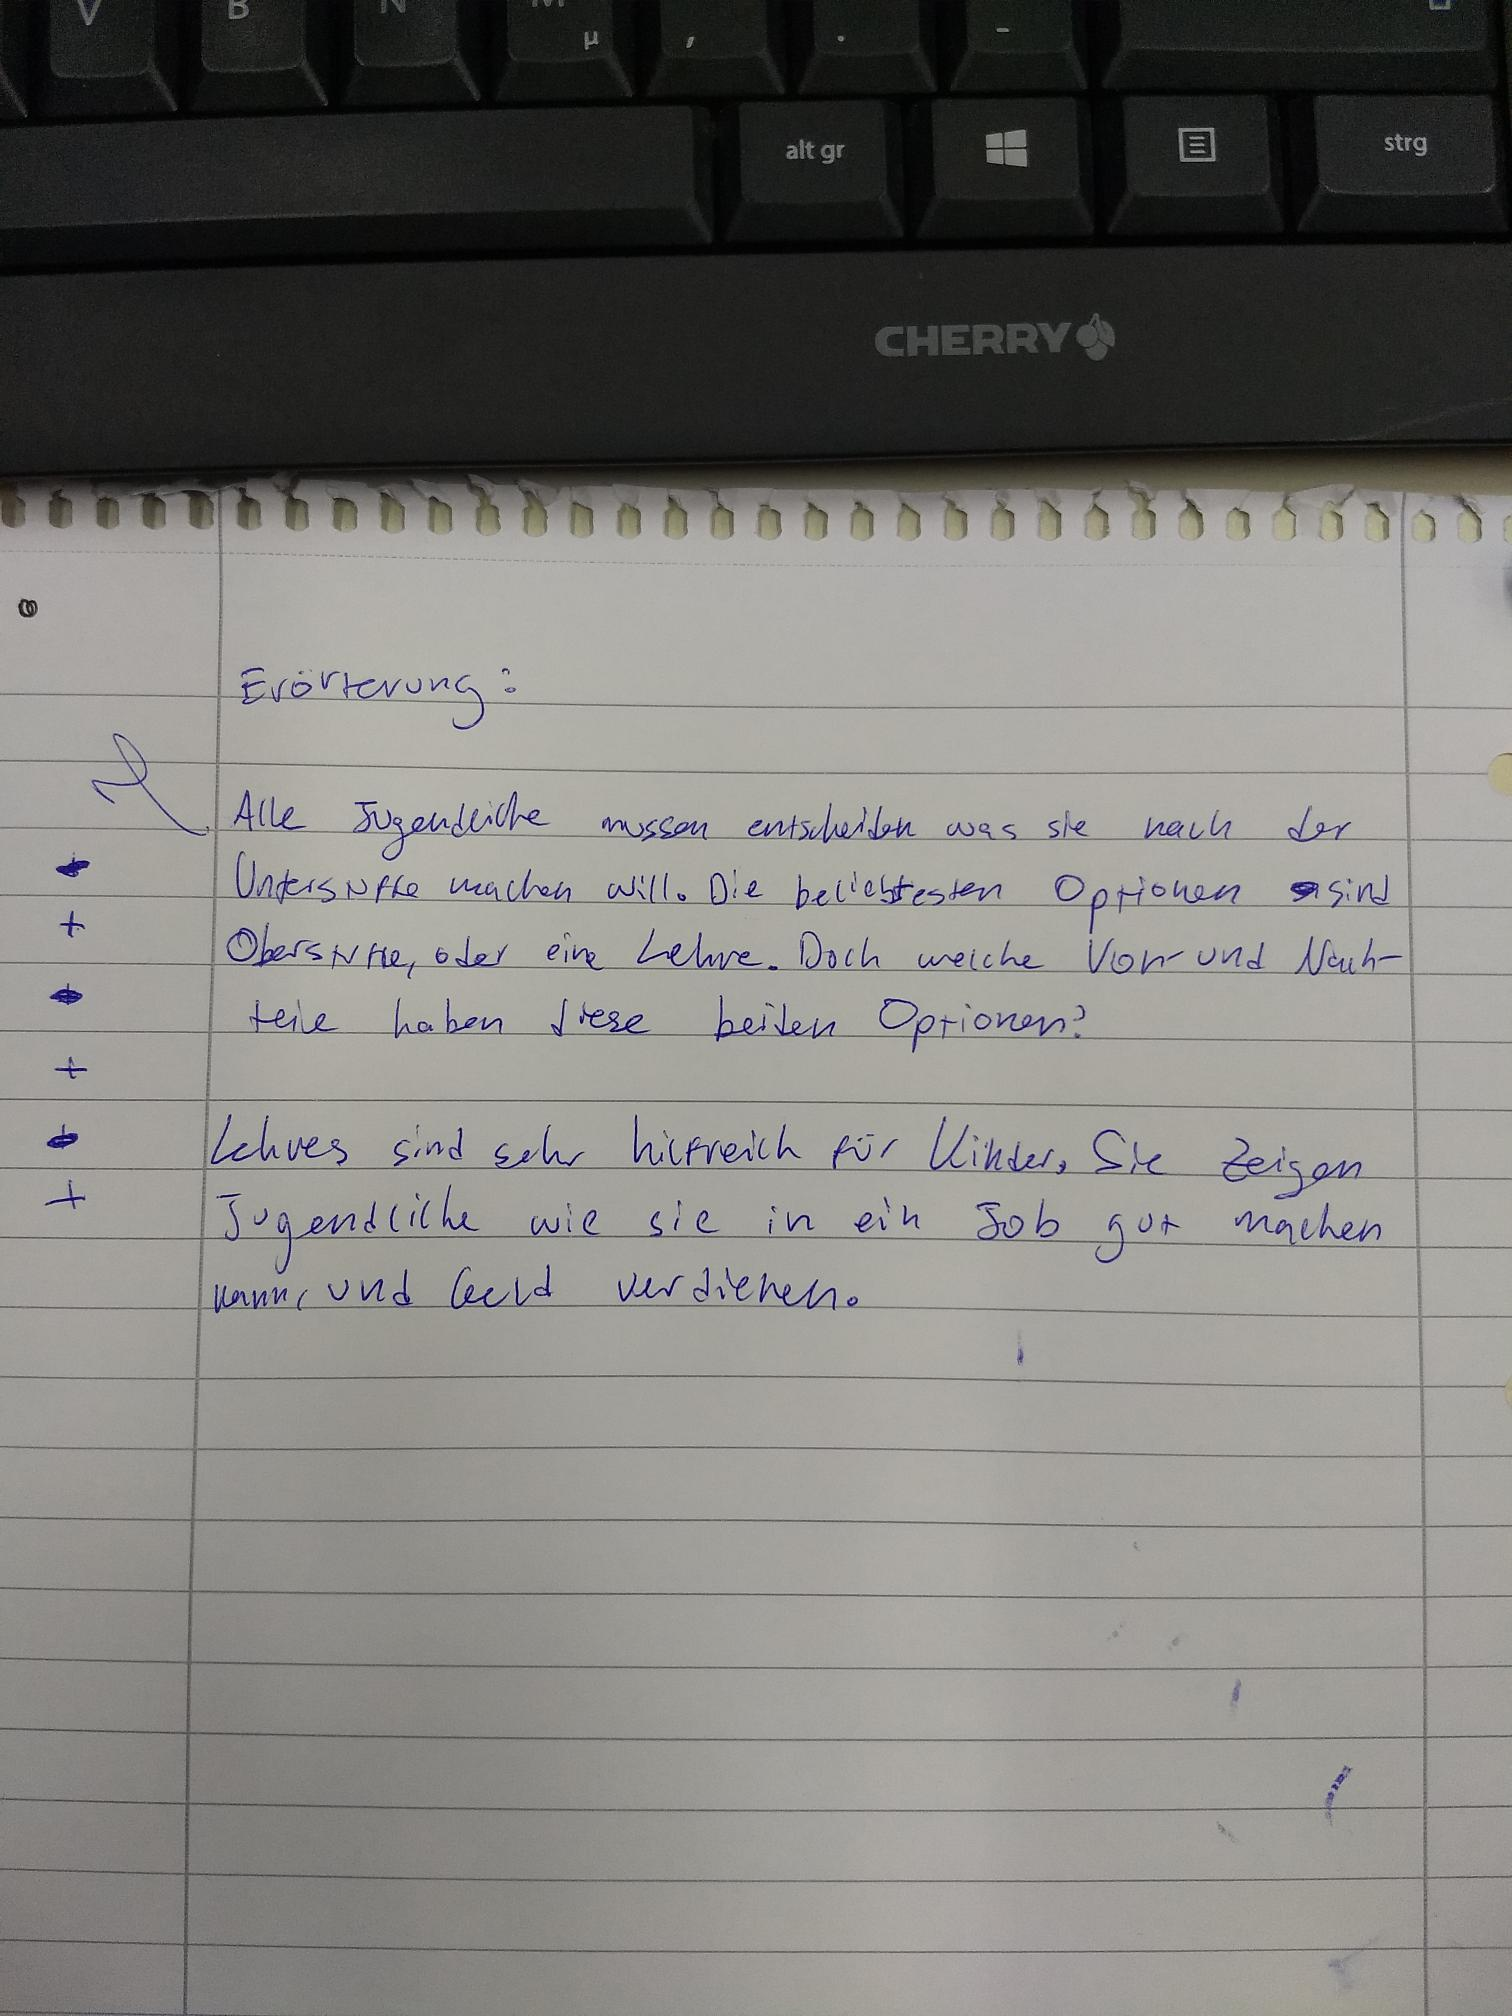 V B N M µ , . -
alt gr strg
CHERRY
Erörterung:
Alle Jugendliche mussen entscheiden was sie nach der
Unterstuffe machen will. Die beliebtesten Optionen sind
Oberstuffe, oder eine Lehre. Doch welche Vor- und Nach-
teile haben diese beiden Optionen?
Lehres sind sehr hilfreich für Kinder. Sie zeigen
Jugendliche wie sie in ein Job gut machen
kann, und Geld verdienen.
+
+
+